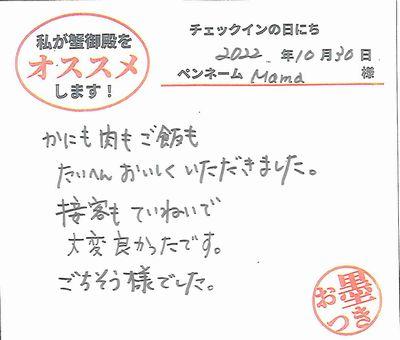 私が蟹御殿を
オススメ
します!
チェックインの日にち
2022年10月30日
ペンネーム Mama 様
かにも肉もご飯も
たいへんおいしくいただきました。
接客もていねいで
大変良かったです。
ごちそう様でした。
お墨つき